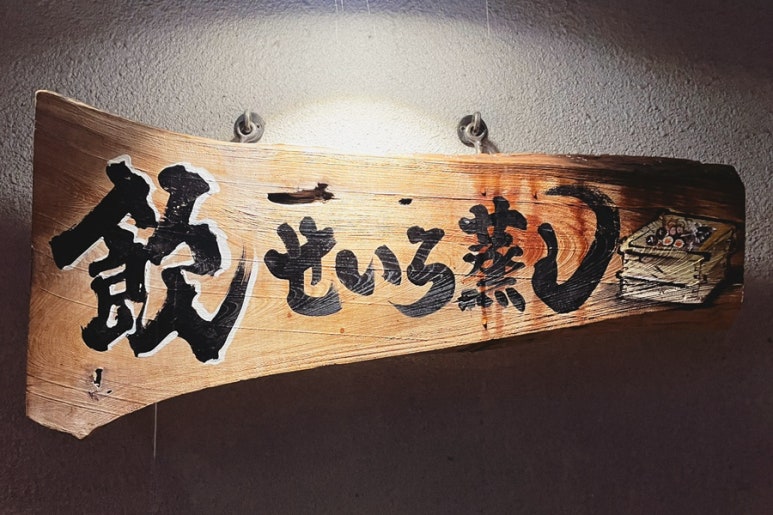 飯 せいろ蒸し